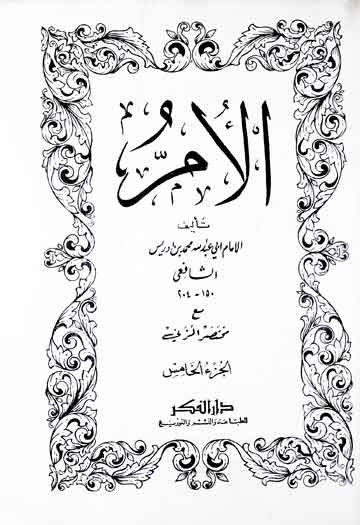 الأُمُّ
تأليف
الإمام أبي عبد الله محمد بن إدريس
الشافعي
١٥٠ - ٢٠٤
مع
مختصر المزني
الجزء الخامس
دار الفكر
للطباعة والنشر والتوزيع